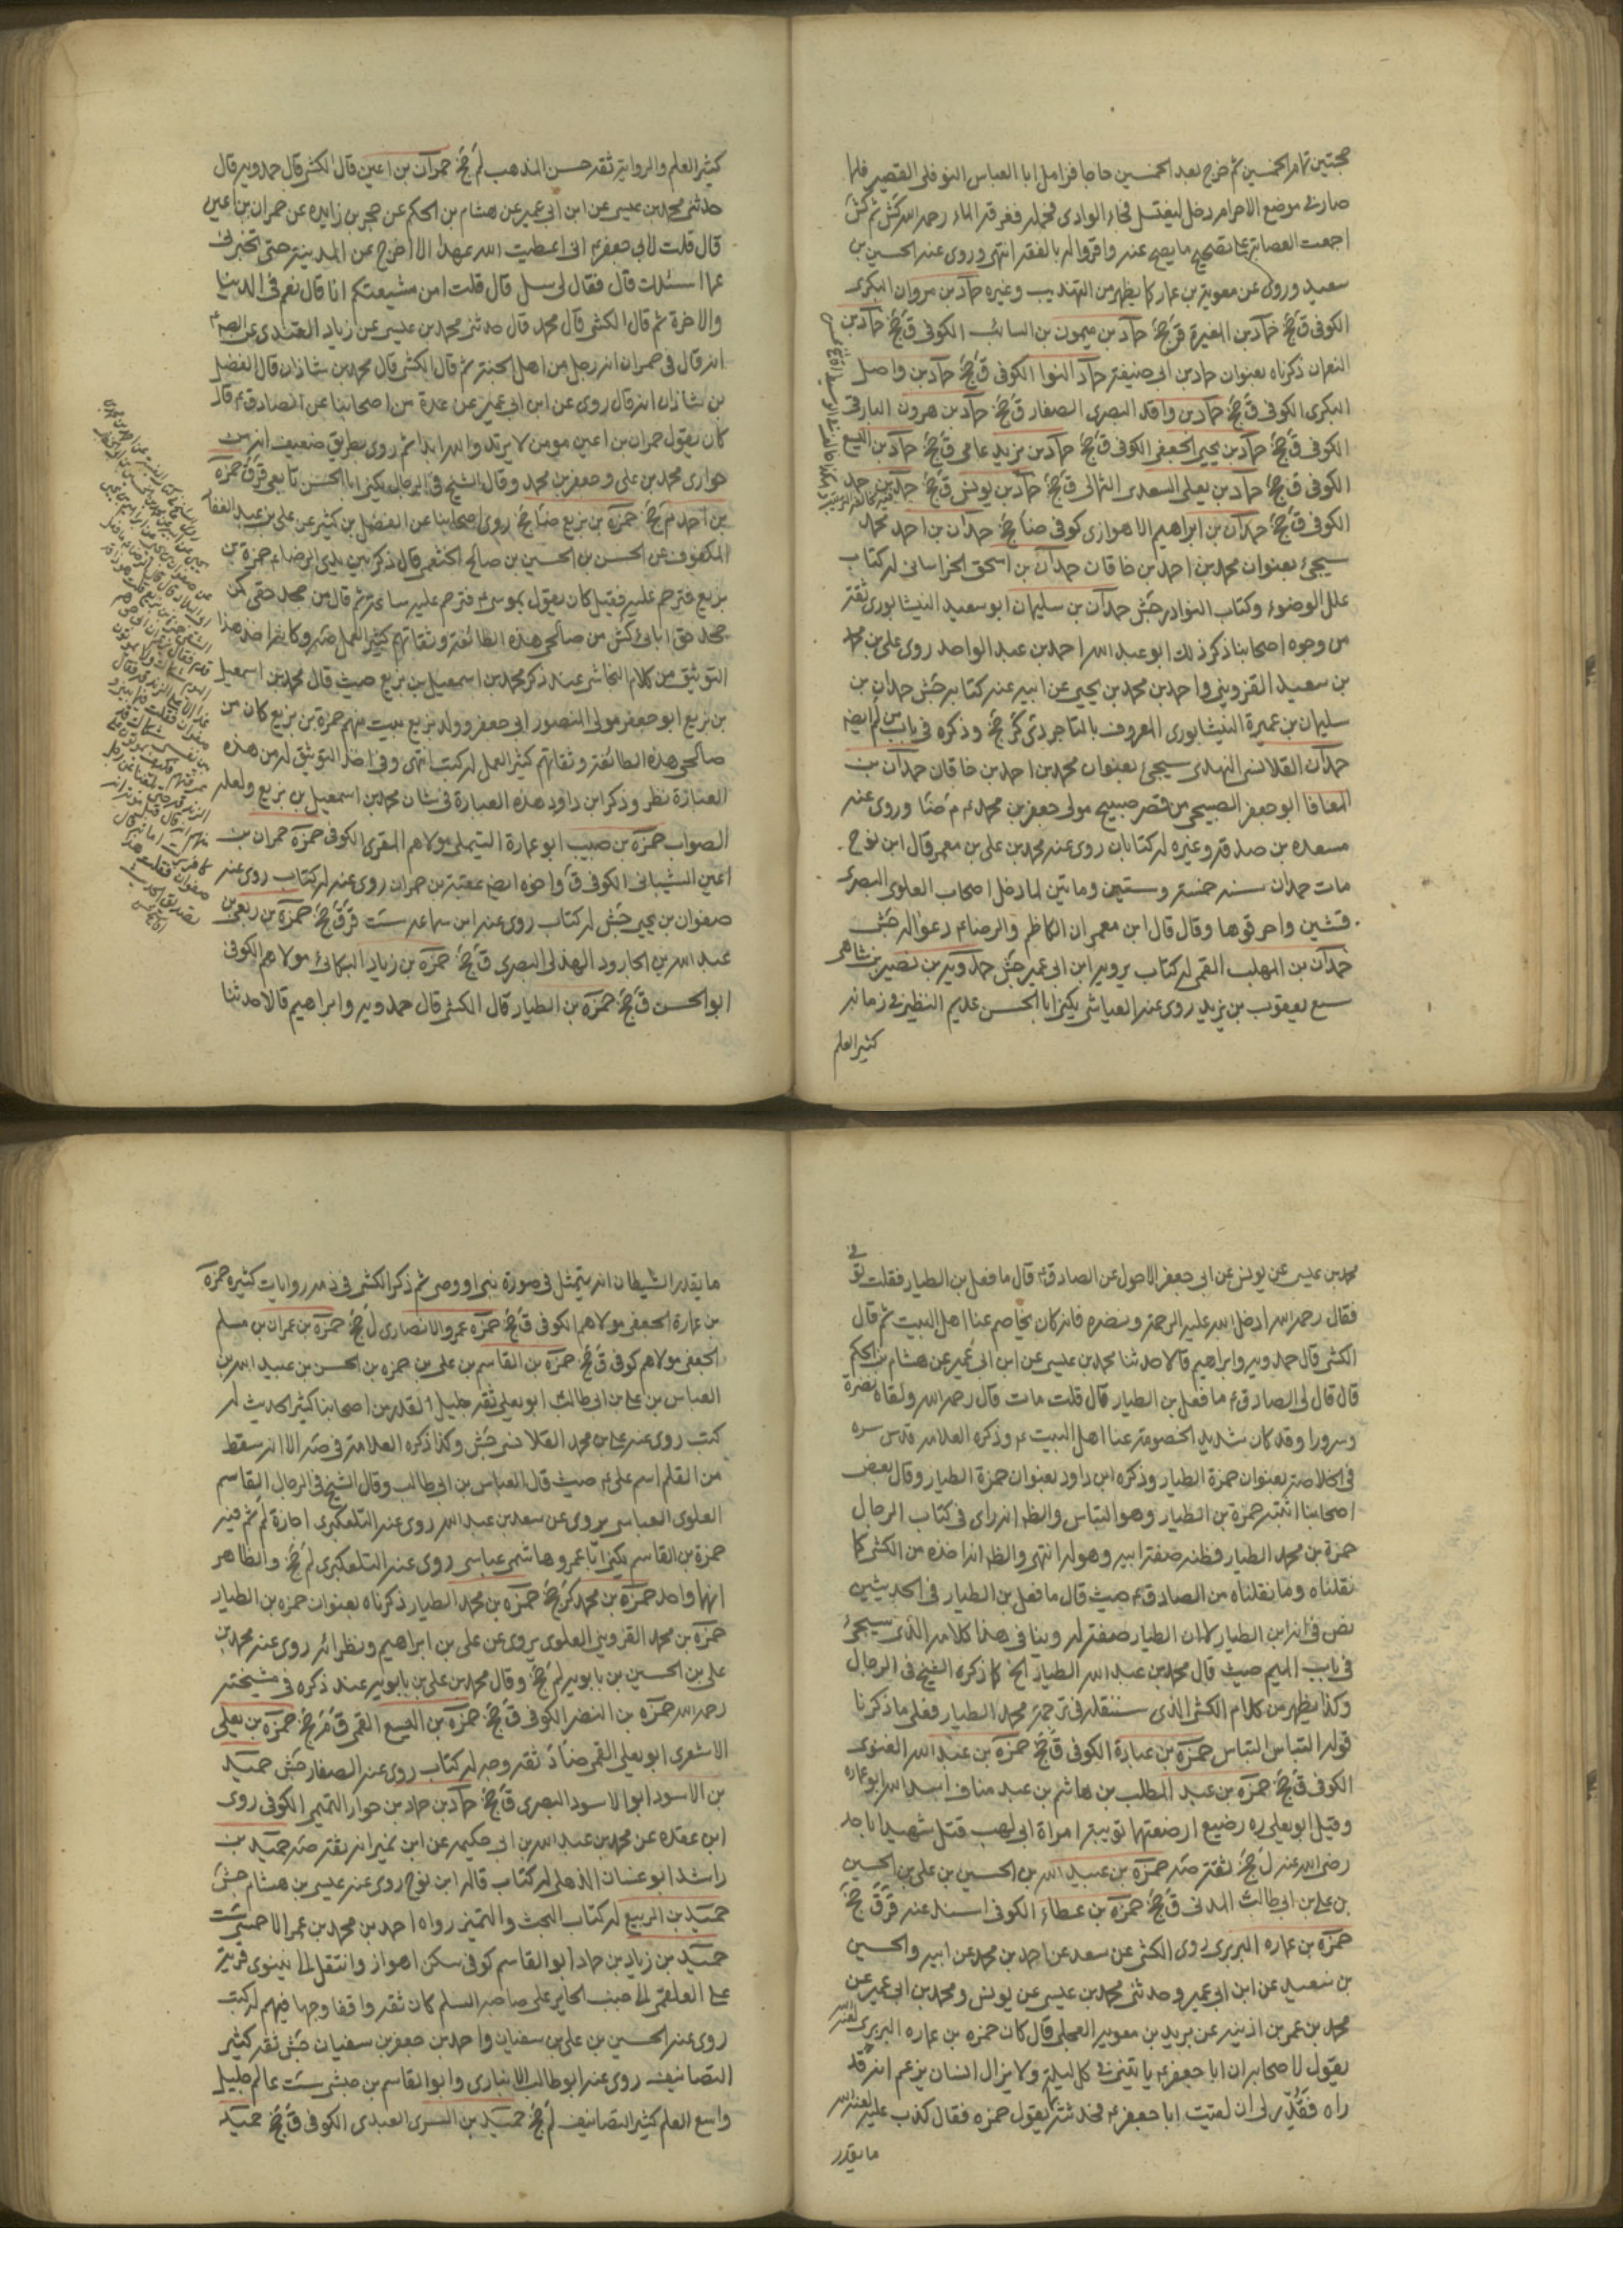 حجتين تمام الخمسين ثم خرج بعد الخمسين حاجا فزامل ابا العباس النوفلى القصير فلما
صار فى موضع الاحرام دخل ليغتسل فجاء الوادى فحمله فغرقه الماء رحمه الله كش ثم كش
اجمعت العصابة على تصحيح ما يصح عنه واقروا له بالفقه انتهى وروى عنه الحسين بن
سعيد وروى عن معوية بن عمار كما يظهر من التهذيب وغيره حماد بن مروان البكرى
الكوفى ق جخ حماد بن المغيرة قر جخ حماد بن ميمون بن السائب الكوفى ق جخ حماد بن
النعمان ذكرناه بعنوان حماد بن ابى حنيفة حماد النوا الكوفى ق جخ حماد بن واصل
البكرى الكوفى ق جخ حماد بن واقد البصرى الصفار ق جخ حماد بن هرون البارقى
الكوفى ق جخ حماد بن يحيى الجعفى الكوفى ق جخ حماد بن يزيد عامى ق جخ حماد بن اليسع
الكوفى ق جخ حماد بن يعلى السعدى الثمالى ق جخ حماد بن يونس ق جخ حماد بن
الكوفى ق جخ حمدان بن ابراهيم الاهوازى كوفى ضا جخ حمدان بن احمد محمد
سيجئ بعنوان محمد بن احمد بن خاقان حمدان بن اسحق الخراسانى له كتاب
علل الوضوء وكتاب النوادر جش حمدان بن سليمان ابو سعيد النيشابورى ثقة
من وجوه اصحابنا ذكر ذلك ابو عبد الله احمد بن عبد الواحد روى على بن محمد
بن سعيد القزوينى واحمد بن محمد بن يحيى عن ابيه عنه كتابه جش حمدان بن
سليمان بن عميرة النيشابورى المعروف بالتاجر دى كر جخ وذكره فى باب من لم ايضا
حمدان القلانسى النهدى سيجئ بعنوان محمد بن احمد بن خاقان حمدان بن
المعافا ابو جعفر الصبيحى من قصر صبيح مولى جعفر بن محمد ع م ضا وروى عنه
مسعدة بن صدقة وغيره له كتابان روى عنه محمد بن على بن معمر قال ابن نوح
مات حمدان سنة خمس وستين ومائتين لما دخل اصحاب العلوى البصرى
قسين واحرقوها وقال قال ابن معمر ان الكاظم والرضا ع دعوا له جش
حمدان بن المهلب القمى له كتاب يرويه ابن ابى عمير جش حمدويه بن نصير بن شاهى
سمع يعقوب بن يزيد روى عنه العياشى يكنى ابا الحسن عديم النظير فى زمانه
كثير العلم
كثير العلم والرواية ثقة حسن المذهب لم جخ حمران بن اعين قال الكشى قال حمدويه قال
حدثنى محمد بن عيسى عن ابن ابى عمير عن هشام بن الحكم عن حجر بن زايده عن حمران بن اعين
قال قلت لابى جعفر ع انى اعطيت الله عهدا الا اخرج عن المدينة حتى تخبرنى
عما اسئلك قال فقال لى سل قال قلت امن شيعتكم انا قال نعم فى الدنيا
والاخرة ثم قال الكشى قال محمد قال حدثنى محمد بن عيسى عن زياد القندى عن الص ع
انه قال فى حمران انه رجل من اهل الجنة ثم قال الكشى قال محمد بن شاذان قال الفضل
بن شاذان انه قال روى عن ابن ابى عمير عن عدة من اصحابنا عن الصادق ع قال
كان يقول حمران بن اعين مومن لا يرتد والله ابدا ثم روى بطريق ضعيف انه من
حوارى محمد بن على وجعفر بن محمد وقال الشيخ فى الرجال يكنى ابا الحسن تابعى قر ق جخ حمزة
بن احمد م جخ حمزة بن بزيع ضا جخ روى اصحابنا عن الفضل بن كثير عن على بن عبد الغفار
المكفوف عن الحسن بن الحسين بن صالح الخثعمى قال ذكر بين يدى الرضا ع حمزة بن
بزيع فترحم عليه فقيل كان يقول بموسى ع فترحم عليه ساعة ثم قال من جحد حقى كمن
جحد حق ابائى كش من صالحى هذه الطائفة وثقاتهم كثير العمل صه وكانه اخذ هذا
التوثيق من كلام النجاشى عند ذكر محمد بن اسمعيل بن بزيع حيث قال محمد بن اسمعيل
بن بزيع ابو جعفر مولى المنصور ابى جعفر وولد بزيع بيت منهم حمزة بن بزيع كان من
صالحى هذه الطائفة وثقاتهم كثير العمل له كتب انتهى وفى اخذ التوثيق له من هذه
العبارة نظر وذكر ابن داود هذه العبارة فى شان محمد بن اسمعيل بن بزيع ولعله
الصواب حمزة بن حبيب ابو عمارة التيملى مولاهم المقرى الكوفى حمزة حمران بن
اعين الشيبانى الكوفى ق واخوه ايضا عقبة بن حمران روى عنه له كتاب روى عنه
صفوان بن يحيى جش له كتاب روى عنه ابن سماعه ست قر ق جخ حمزة بن ربعى بن
عبد الله بن الجارود الهذلى البصرى ق جخ حمزه بن زياد البكائى مولاهم الكوفى
ابو الحسن ق جخ حمزه بن الطيار قال الكشى قال حمدويه وابراهيم قالا حدثنا
محمد بن عيسى عن يونس عن ابى جعفر الاحول عن الصادق ع قال ما فعل بن الطيار فقلت توفى
فقال رحمه الله ادخل الله عليه الرحمة ونضره فانه كان يخاصم عنا اهل البيت ثم قال
الكشى قال حمدويه وابراهيم قالا حدثنا محمد بن عيسى عن ابن ابى عمير عن هشام بن الحكم
قال قال لى الصادق ع ما فعل بن الطيار قال قلت مات قال رحمه الله ولقاه نضرة
وسرورا وقد كان شديد الخصومة عنا اهل البيت ع وذكره العلامه قدس سره
فى الخلاصة بعنوان حمزة الطيار وذكره ابن داود بعنوان حمزة الطيار وقال بعض
اصحابنا اثبته حمزة بن الطيار وهو التباس والظ انه راى فى كتاب الرجال
حمزة بن محمد الطيار فظنه صفة ابيه وهو له انتهى والظ انه اخذه من الكشى كما
نقلناه وما نقلناه من الصادق ع حيث قال ما فعل بن الطيار فى الحديثين
نص فى انه ابن الطيار لا ان الطيار صفة له وينافى هذا كلامه الذى سيجئ
فى باب الميم حيث قال محمد بن عبد الله الطيار الخ كما ذكره الشيخ فى الرجال
وكذا يظهر من كلام الكشى الذى سننقله فى ترجمة محمد الطيار فعلى ما ذكرنا
قوله التباس التباس حمزة بن عبادة الكوفى ق جخ حمزه بن عبد الله الغنوى
الكوفى ق جخ حمزه بن عبد المطلب بن هاشم بن عبد مناف اسد الله ابو عماره
وقيل ابو يعلى ره رضيع ارضعتهما ثويبة امراة ابى لهب قتل شهيدا باحد
رضى الله عنه ل جخ ثقة صه حمزه بن عبيد الله بن الحسين بن على بن الحسين
بن على بن ابى طالب المدنى ق جخ حمزه بن عطاء الكوفى اسند عنه قر ق جخ
حمزه بن عماره البربرى روى الكشى عن سعد عن احمد بن محمد عن ابيه والحسين
بن سعيد عن ابن ابى عمير وحدثنى محمد بن عيسى عن يونس ومحمد بن ابى عمير عن
محمد بن عمر بن اذينه عن بريد بن معويه العجلى قال كان حمزه بن عماره البربرى لعنه الله
يقول لاصحابه ان ابا جعفر ع ياتينى فى كل ليلة ولا يزال انسان يزعم انه قد
راه فقدر لى ان لقيت ابا جعفر ع فحدثته بما يقول حمزه فقال كذب عليه لعنة الله
ما يقدر
ما يقدر الشيطان ان يتمثل فى صورة نبى او وصى ثم ذكر الكشى فى ذمه روايات كثيره حمزة
بن عمارة الجعفى مولاهم الكوفى ق جخ حمزه عمرو الانصارى ل جخ حمزة بن عمران بن مسلم
الجعفى مولاهم كوفى ق جخ حمزه بن القاسم بن على بن حمزه بن الحسن بن عبيد الله بن
العباس بن على بن ابى طالب ابو يعلى ثقة جليل القدر من اصحابنا كثير الحديث له
كتب روى عنه على بن محمد القلانسى جش وكذا ذكره العلامة فى صه الا انه سقط
من القلم اسم على ع حيث قال العباس بن ابى طالب وقال الشيخ فى الرجال القاسم
العلوى العباسى يروى عن سعد بن عبد الله روى عنه التلعكبرى اجازة لم ثم فيه
حمزة بن القاسم يكنى ابا عمرو هاشمى عباسى روى عنه التلعكبرى لم جخ والظاهر
انهما واحد حمزه بن محمد كر جخ حمزه بن محمد الطيار ذكرناه بعنوان حمزه بن الطيار
حمزه بن محمد القزوينى العلوى يروى عن على بن ابراهيم ونظرائه روى عنه محمد بن
على بن الحسين بن بابويه لم جخ وقال محمد بن على بن بابويه عند ذكره فى مشيخته
رحمه الله حمزه بن النضر الكوفى ق جخ حمزه بن اليسع القمى ق م جخ حمزه بن يعلى
الاشعرى ابو يعلى القمى ضا د ثقه وجه له كتاب روى عنه الصفار جش حميد
بن الاسود ابو الاسود البصرى ق جخ حماد بن حماد بن حوار التميمى الكوفى روى
ابن عقده عن محمد بن عبد الله بن ابى حكيمه عن ابن نمير انه ثقة صه حميد بن
راشد ابو غسان الذهلى له كتاب قاله ابن نوح روى عنه عيسى بن هشام جش
حميد بن الربيع له كتاب البحث والتمييز رواه احمد بن محمد بن عمر الاحمسى ست
حميد بن زياد بن حماد ابو القاسم كوفى سكن اهواز وانتقل الى نينوى قرية
على العلقمى الى جنب الحاير على صاحبه السلم كان ثقة واقفا وجها فيهم له كتب
روى عنه الحسين بن على بن سفيان واحمد بن جعفر بن سفيان جش ثقة كثير
التصانيف روى عنه ابو طالب الانبارى وابو القاسم بن حبشى ست عالم جليل
واسع العلم كثير التصانيف لم جخ حميد بن السرى العبدى الكوفى ق جخ حميد